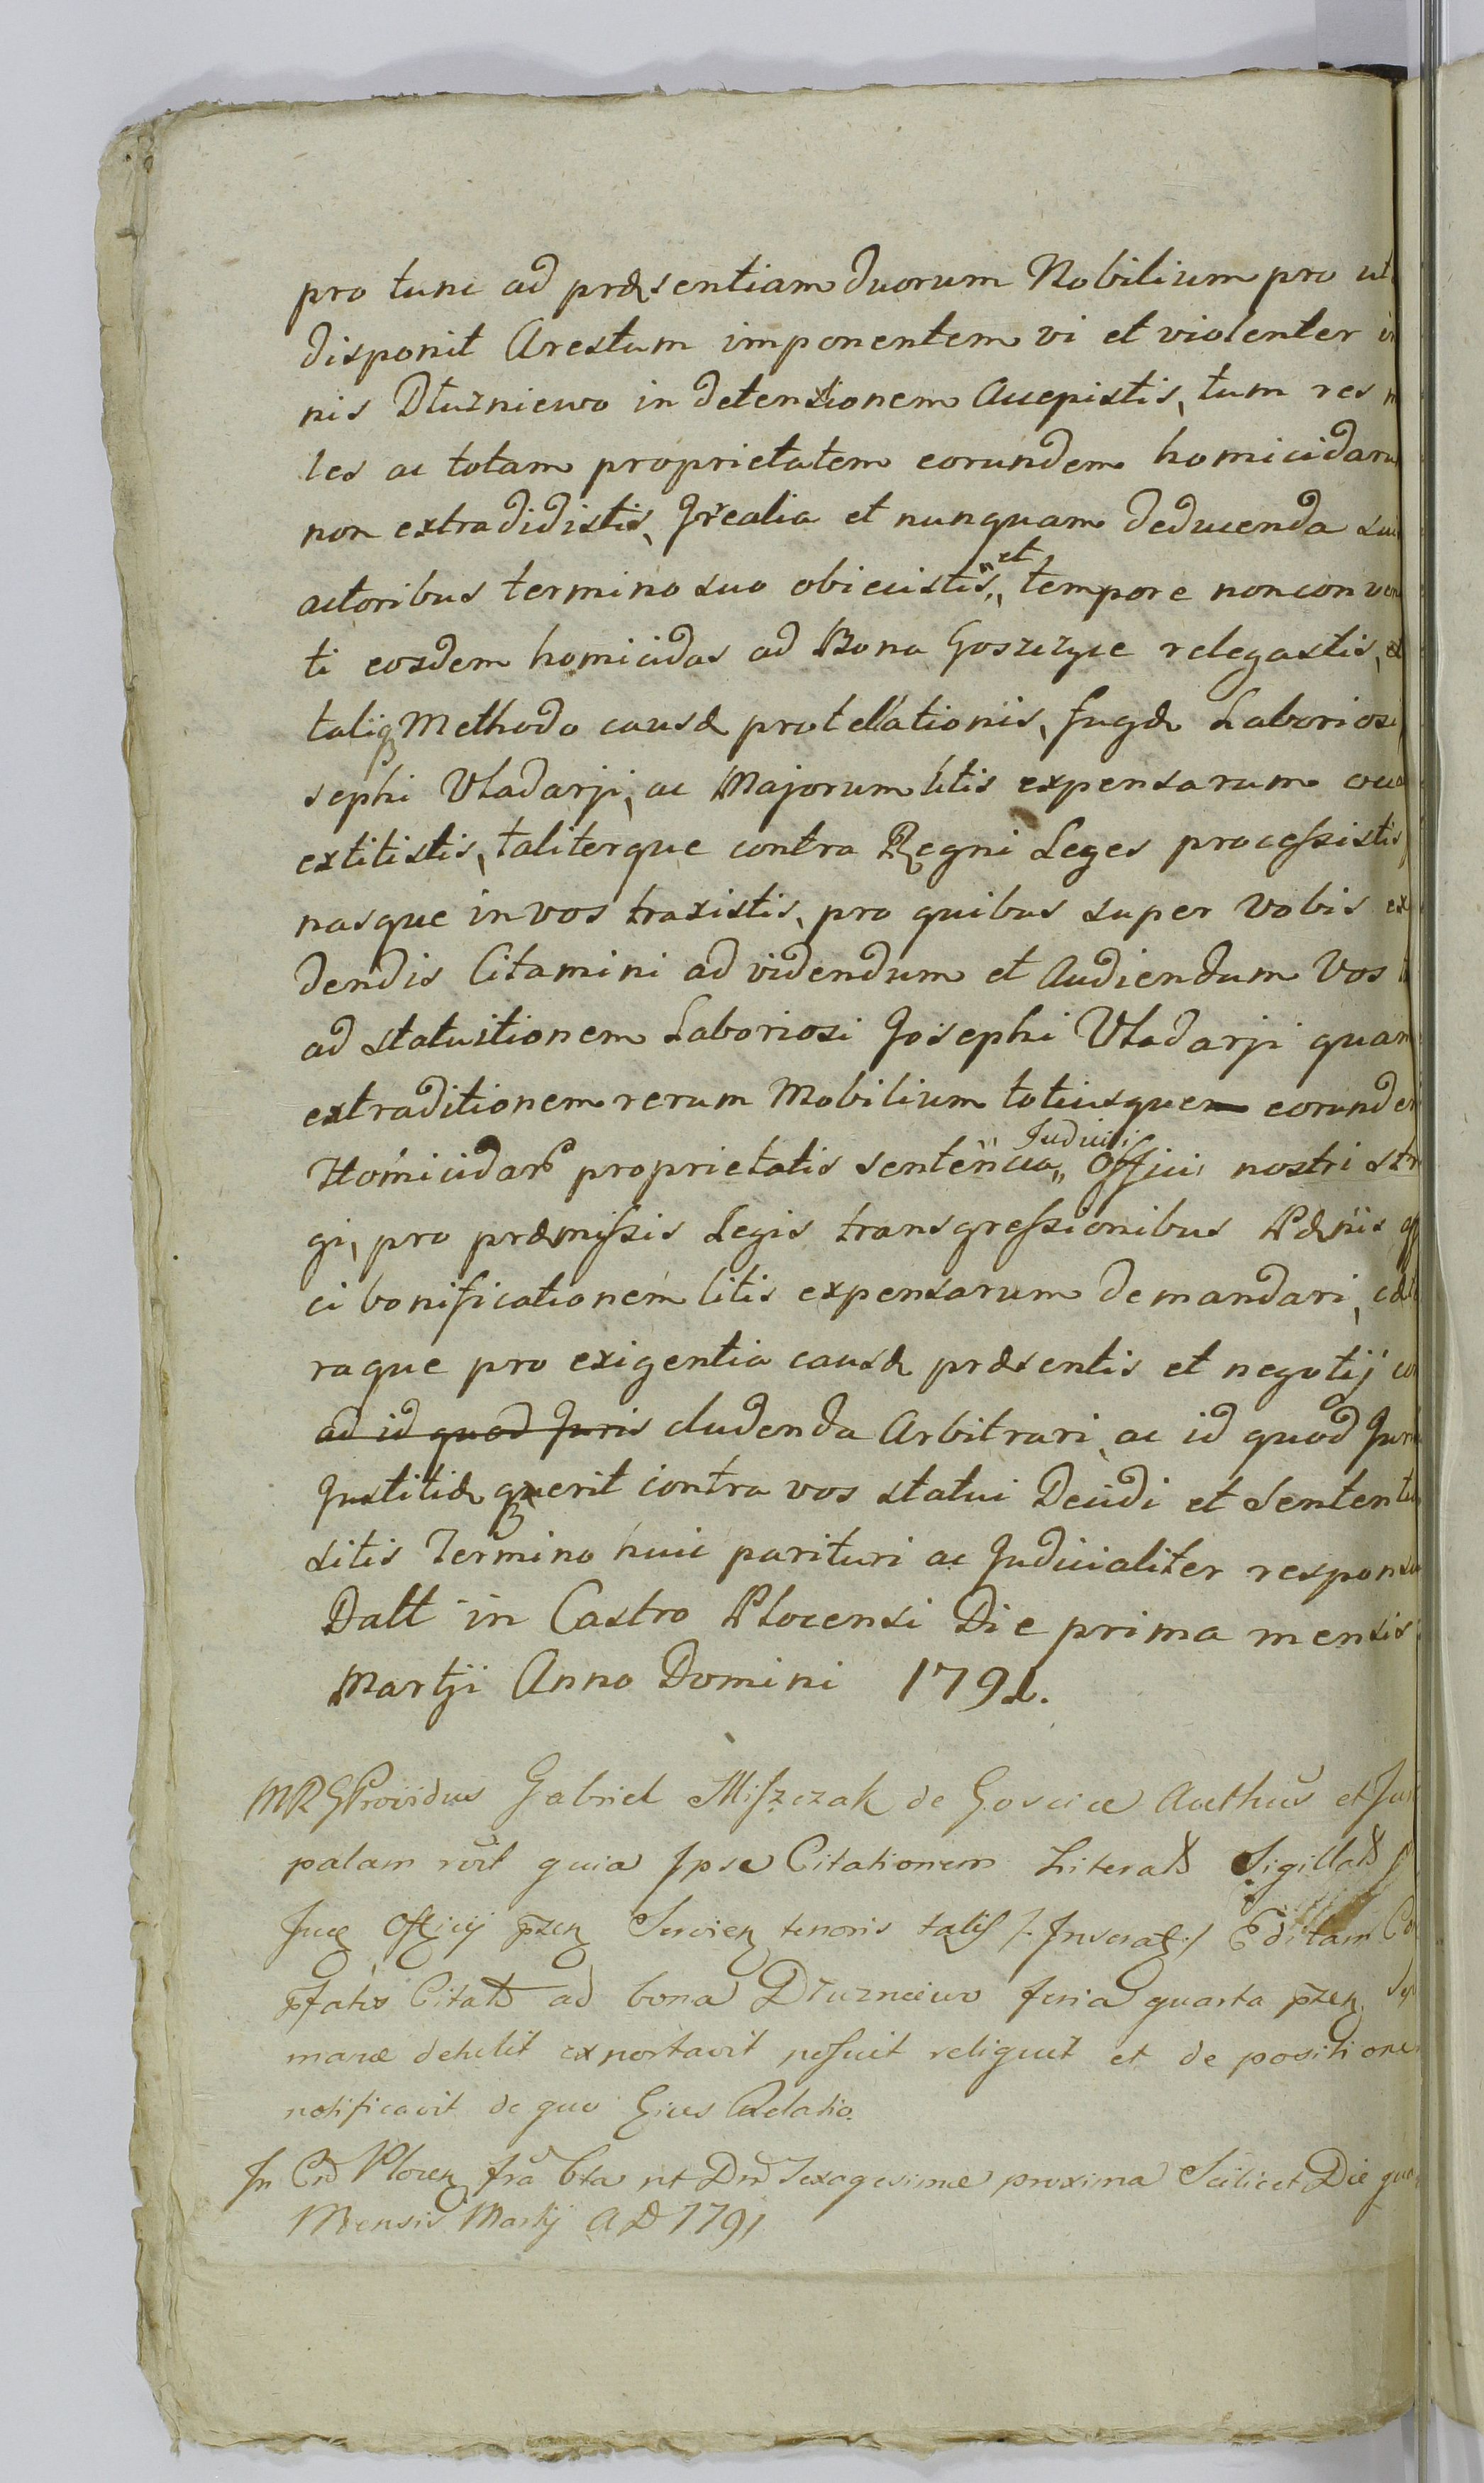 pro tunc ad præsentiam duorum Nobilium pro ut
disponit Arestum imponentem vi et violenter
nis Dłużniewo in detentionem Accepistis, tum res
les ac totam proprietatem eorundem homicidaru
non extradidistis, Jrealia et nunquam deducenda
actoribus termino suo obiecistis „et tempore non conven
ti eosdem homicidas ad Bona Goszczyce relegastis, et
taliq Methodo causæ protellationis, fugæ Laboriosi
sephi Vladarji, ac Majorum litis expensarum
extitistis, taliterque contra Regni Leges processistis
nasque in vos traxistis, pro quibus super vobis
dendis Citamini ad videndum et Audiendum Vos
ad statuitionem Laboriosi Josephi Vladarji quam
extraditionem rerum Mobilium totiusque eorundem
Homicidar proprietatis sentencia „Judicii Officii nostri
gi, pro præmissis Legis transgressionibus Pænis
ci bonificationem litis expensarum demandari, cæte
raque pro exigentia causæ præsentis et negotij
ad id quod Juris cludenda Arbitrari, ac id quod Juris
Justitiæ querit contra vos statui Decidi et Sententi
sitis Termino huic parituri ac Judicialiter respon
Datt in Castro Plocensi Die prima mensis
Martji Anno Domini 1791.
MRG Providus Gabriel Miszczak de Goscice Authus et Jur
palam rcit quia Ipse Citationem Literat Sigillat
Offcij pzen Servien tenoris talis /: Inserat :/ Editam
pfatis Citat ad bona Dłuzniewo feria quarta pzen
manæ detulit exportavit posuit reliquit et de positione
notificavit de quo Eius Relatio.
In Crd Plocen fra 6ta pt Dni Sexagesimæ proxima Scilicet Die
Mensis Martij A D 1791